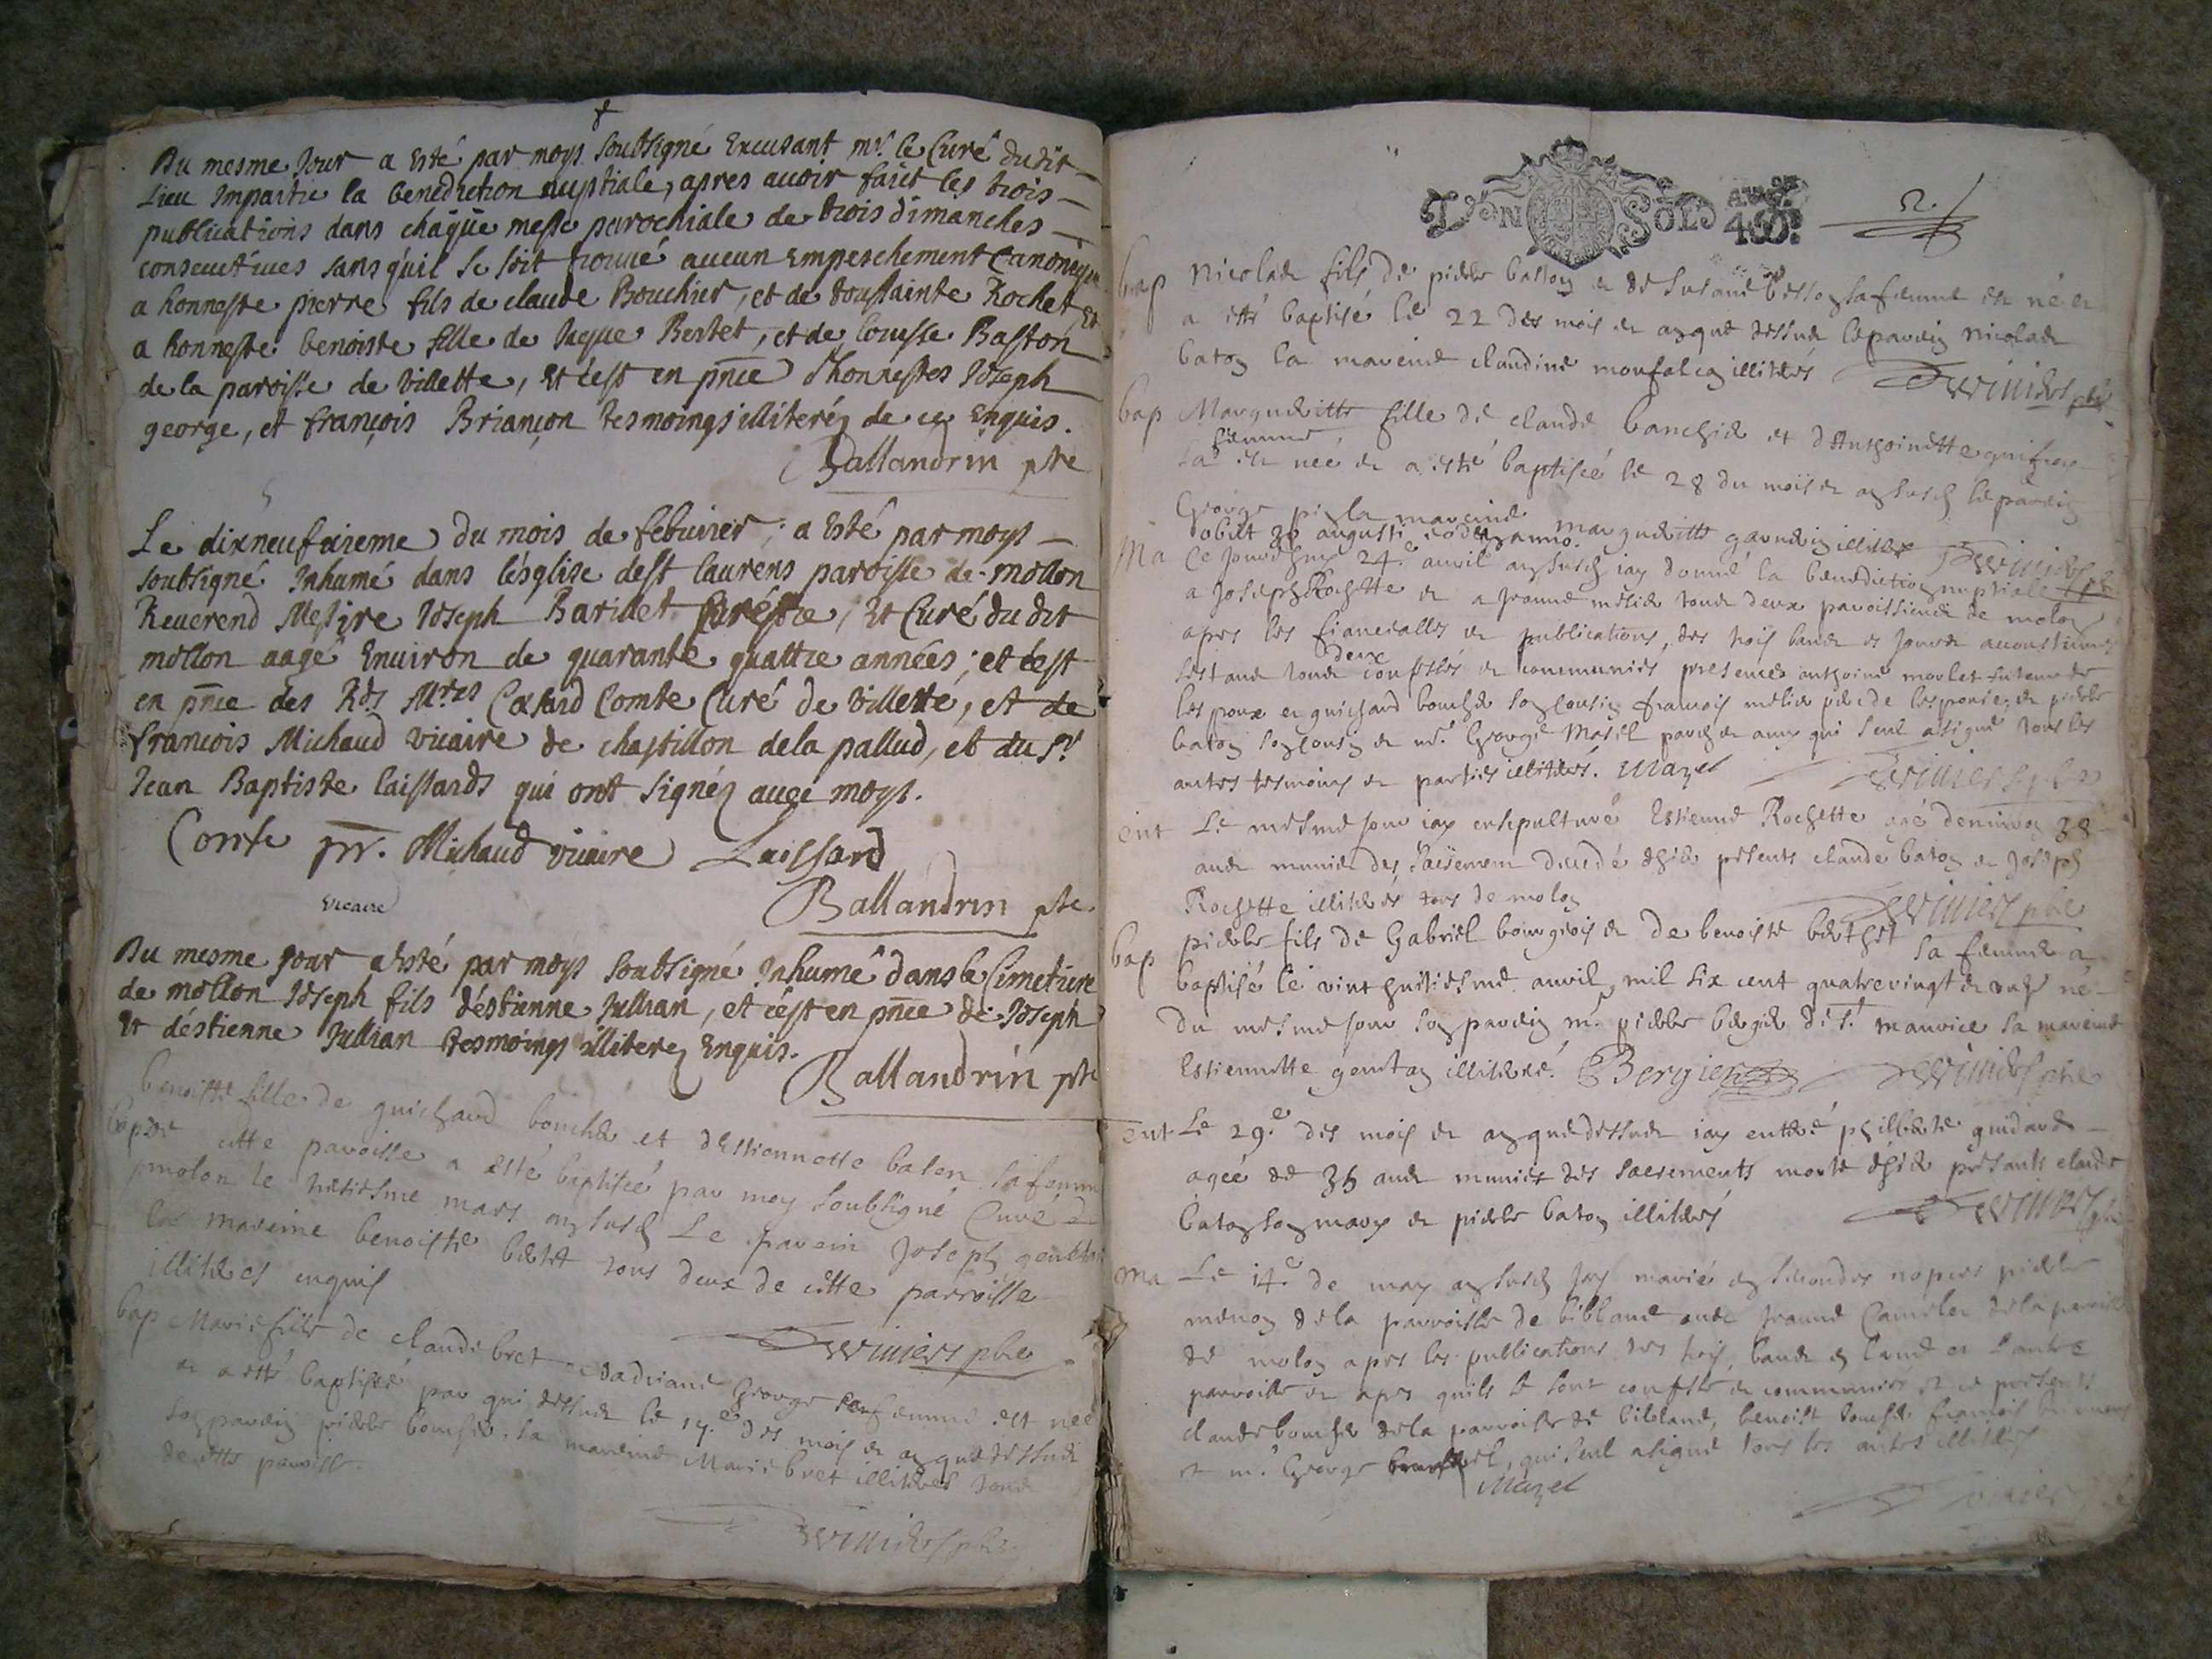 Du mesme Jour a Esté par moys soubsigné Excusant mr. le Curé dudit
Lieu Impartie la benediction nuptiale, apres avoir faict les trois
publications dans chaque messe parochiale de trois dimanches
consecutives sans qu'il se soit trouvé aucun Empeschement Canonique
a honneste pierre fils de claude Bouchier, et de toussainte Rochet, Et
a honneste benoiste fille de Jaque Bertet, et de Lousse Baston
de la paroisse de villette, Et c'est en pñce d'honnestes Joseph
george, et françois Briançon tesmoings illiteréz de ce Enquis.
Ballandrin ptre
Le dixneufvieme du mois de febvrier; a Esté par moys
soubsigné Inhumé dans l'ésglise de st laurens paroisse de mollon
Reverend Messire Joseph Barillet Et Curé du dit
mollon aagé Environ de quarante quattre années; et c'est
en pñce des Rds Mres Comte Curé de Villette, et de
françois Michaud vicaire de chastillon dela pallud, et du Sr
Jean Baptiste laissards qui ont signéz avec moys.
Comte Michaud vicaire Laissard
vicaire Ballandrin ptre
Du mesme jour a Esté par moys soubsigné Inhumé dans le Cimetiere
de mollon Joseph fils d'éstienne Jullian, et c'est en pñce de Joseph
Et d'éstienne Jullian tesmoings illiterez Enquis.
Ballandrin ptre
benoitte fille de guichard bouchier et d'Estiennette baton sa femme
de cette paroisse a esté baptisée par moy soubsigné Curé de
molon le mars an susd Le parein Joseph
la mareine benoiste bertet tous deux de cette parroisse
illiteres enquis
Dewiniers pbre
bap Marie fille de claude bret et dadriane George sa femme est née
et a esté baptisée par qui dessus le 17e des mois et an que dessus
son parein pierre bouchier, la mareine Marie bret illiteres tous
de cette paroisse.
Dewiniers pbre
UN SOL
2.
bap Nicolas fils de pierre baton et de Susane sa femme est né et
a esté baptisé le 22 des mois et an que dessus le parein nicolas
baton la mareine claudine monfalcon illiteres Dewiniers pbre
bap Marguerite fille de claude banchier et d'Anthoinette
femme
sa est née et a esté baptisée le 28 du mois et an susd le parein
George la mareine marguerite illiteres Dewiniers pbre
obiit augusti eodem anno.
Ma Ce jourdhuy 24e avril an susd iay donné la benediction nuptiale
a Joseph Rochette et a Jeanne mélier tous deux paroissiens de molon
apres les fiancealles et publications des trois bans es jours accoustumés
deux
sestans tous confessés et communiés presence anthoine molet
lespoux et guichard bouchier son cousin francois mélier de lespouse, et pierre
baton son cousin et mr. George Mazel qui seul a signé tous les
autres tesmoins et parties illiteres. Mazel Dewiniers pbre
ent Le mesme jour iay ensepulturé Estienne Rochette agé denviron 38
ans munis des Sacremens decedé hier présents claude baton et Joseph
Rochette illiterés tous de molon Dewiniers pbre
bap pierre fils de Gabriel bourgeois et de benoiste berthet sa femme a
baptisé le vint huitiesme avril mil six cent quatrevingt et onze né
du mesme jour son parein mr. pierre bergier de St. maurice sa mareine
Estiennette illiterée. Bergier Dewiniers pbre
ent Le 29e des mois et an que dessus iay enterré philberte guidard
agée de 36 ans munie des sacrements morte hier présants claude
baton son mary et pierre baton illiterés Dewiniers pbre
Ma Le 14e de may an susd jay marié en secondes nopces pierre
menon de la parroisse de bibland avec Jeanne de la parroisse
de molon apres les publications des trois bans en l'une et l'autre
parroisse et apres quils se sont confessés et communiés et ce présents
claude bouchier de la parroisse de bibland, benoist bouchier francois
et mr. George qui seul a signé tous les autres illiteres
Mazel